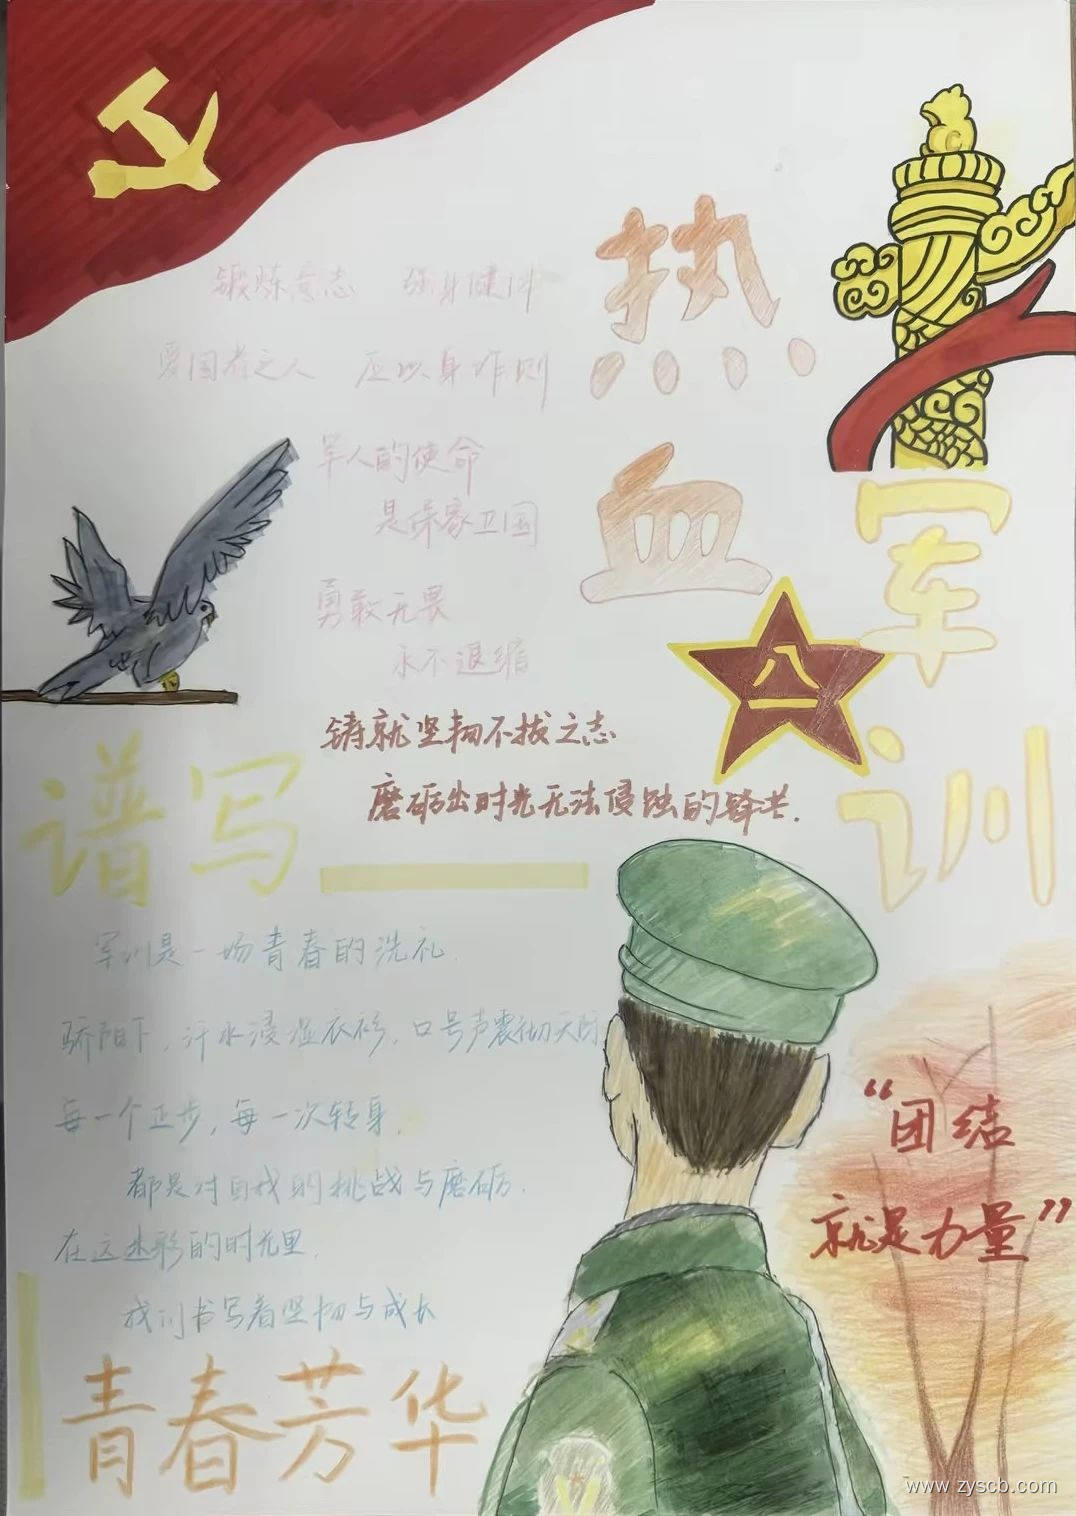 热血
军训
锻炼意志 强身健体
爱国者之人 应以身作则
军人的使命
是保家卫国
勇敢无畏
永不退缩
八一
铸就坚韧不拔之志
磨砺出时光无法侵蚀的锋芒.
谱写——
军训是一场青春的洗礼.
骄阳下，汗水浸湿衣衫，口号声震彻天际
每一个正步，每一次转身，
都是对自我的挑战与磨砺.
在这迷彩的时光里，
我们书写着坚韧与成长
青春芳华
“团结
就是力量”
www.zyscb.com